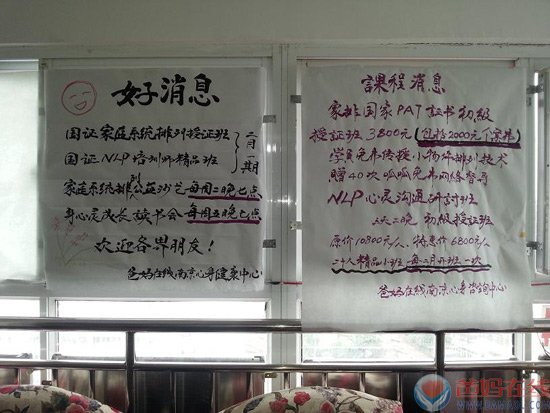 好消息
国证家庭系统排列授证班
国证NLP培训师精品班
二月一期
家庭系统排列公益沙龙 每周二晚七点
身心灵成长读书会 每周五晚七点
欢迎各界朋友！
爸妈在线南京心身健康中心
課程消息
家排国家PAT証书初級
授证班3800元(包括2000元个案
学员免费传授小物件排列技术
贈40次呱呱免费网络督导
NLP心灵沟通研討班
二晚 初级授证班
原价10800元/人、特惠价6800元/人
二十人精品小班 每二月开班一次
爸妈在线南京心身咨询中心
爸妈在线